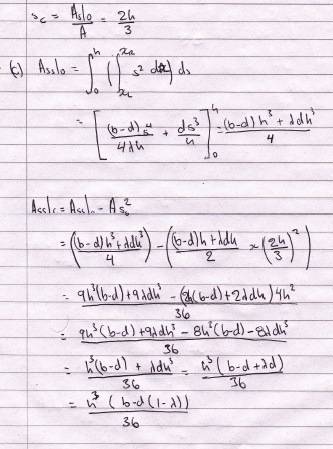 s_c = A_s|o / A = 2h / 3
(c) A_ss|o = ∫_0^h ( ∫ s² dx ) ds
= [ (b-d)s⁴ / 4λh + ds³ / h ]_0^h = (b-d)h³ + λdh³ / 4
A_ss|c = A_ss|o - A s_c²
= ( (b-d)h³ + λdh³ / 4 ) - ( (b-d)h + λdh / 2 × ( 2h / 3 )² )
= 9h³(b-d) + 9λdh³ - (2h(b-d) + 2λdh) 4h² / 36
= 9h³(b-d) + 9λdh³ - 8h²(b-d) - 8λdh³ / 36
= h³(b-d) + λdh³ / 36 = h³(b-d+λd) / 36
= h³ (b-d(1-λ)) / 36